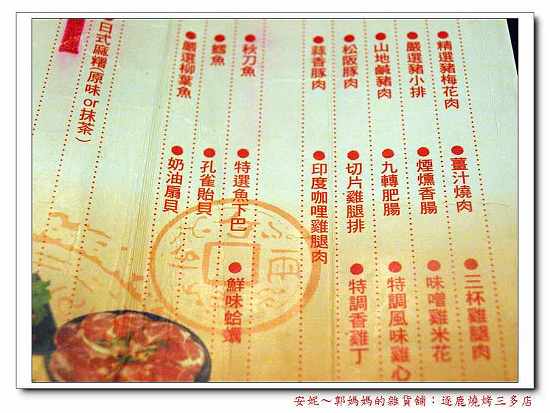 ●精選豬梅花肉 ●薑汁燒肉 ●三杯雞腿肉
●嚴選豬小排 ●煙燻香腸 ●味噌雞米花
●山地鹹豬肉 ●九轉肥腸 ●特調風味雞心
●松阪豚肉 ●切片雞腿排 ●特調香雞丁
●蒜香豚肉 ●印度咖哩雞腿肉
●秋刀魚 ●特選魚下巴 ●鮮味蛤蠣
●鱈魚 ●孔雀貽貝
●嚴選柳葉魚 ●奶油扇貝
●日式麻糬(原味or抹茶)
安妮～郭媽媽的雜貨舖：逐鹿燒烤三多店